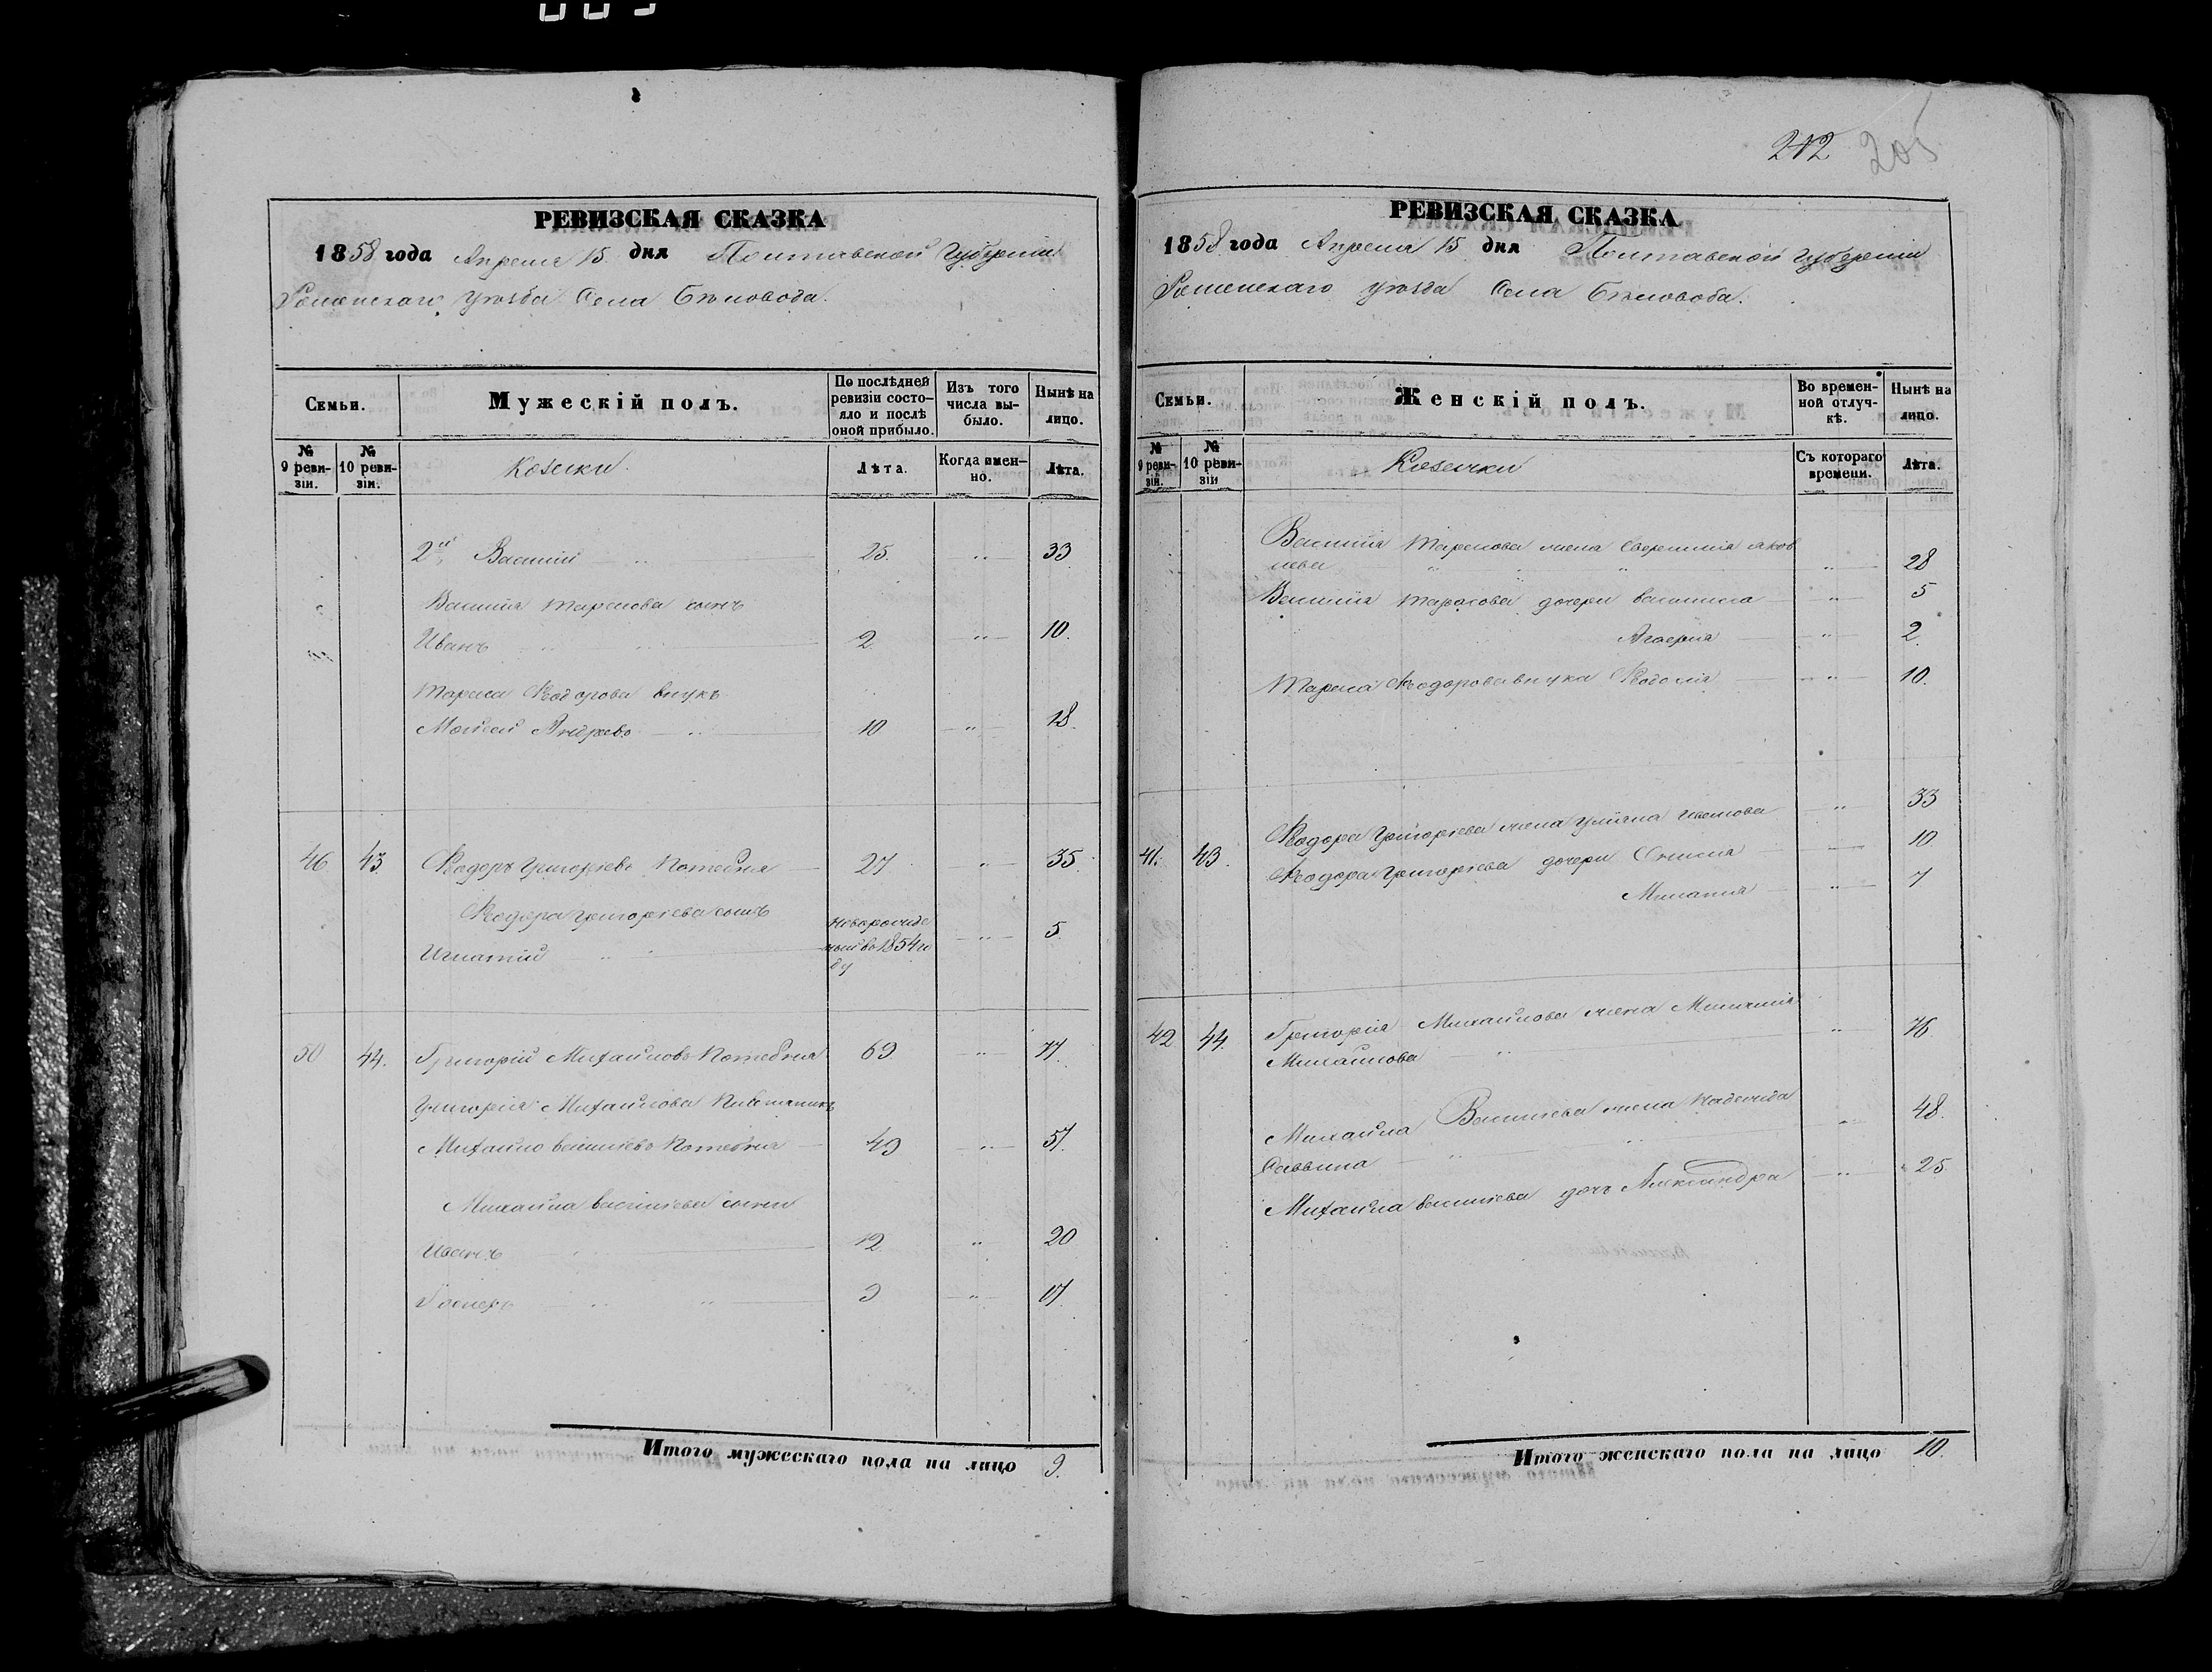 212 205
РЕВИЗСКАЯ СКАЗКА
1858 года Апреля 15 дня Полтавской Губерніи
Роменскаго уѣзда Села Бѣловода.
Семьи.
Мужескій полъ.
По послѣдней ревизіи состо-яло и послѣ оной прибыло.
Изъ того числа вы-было.
Нынѣ на лицо.
№ 9 реви-зіи.
№ 10 реви-зіи.
Козаки
Лѣта.
Когда имен-но.
Лѣта.
2й Василій 25. 33
Василія Тарасова сынъ
Иванъ 2 10.
Тараса Ѳедорова внукъ
Моисей Андреевъ 10 18.
46 43 Ѳедоръ Григорьевъ Потебня 27 35.
Ѳедора Григорьева сынъ
Игнатій новорожде 5.
ный въ 1854 го
ду
50 44. Григорій Михайловъ Потебня 69 77.
Григорія Михайлова племянникъ
Михайло Васильевъ Потебня 49 57.
Михайла Васильева сыни
Иванъ 12 20
9 17.
Итого мужескаго пола на лицо 9.
РЕВИЗСКАЯ СКАЗКА
1858 года Апреля 15 дня Полтавской Губерніи
Роменскаго уѣзда Села Бѣловода.
Семьи.
Женскій полъ.
Во времен-ной отлуч-кѣ.
Нынѣ на лицо.
№ 9 реви-зіи.
№ 10 реви-зіи
Козачки
Съ котораго времени.
Лѣта.
Василія Тарасова жена Яков
лева 28
Василія Тарасова дочери Василиса 5
2.
Тараса Ѳедорова внука Ѳедосія 10.
33
41. 43. Ѳедора Григорьева жена Уліяна
Ѳедора Григорьева дочери 10
Миланія 7
42 44. Григорія Михайлова жена Миланія
Михайлова 76.
Михайла Васильева жена Надежда 48.
Саввина
Михайла Васильева дочь Александра 25.
Итого женскаго пола на лицо 10.